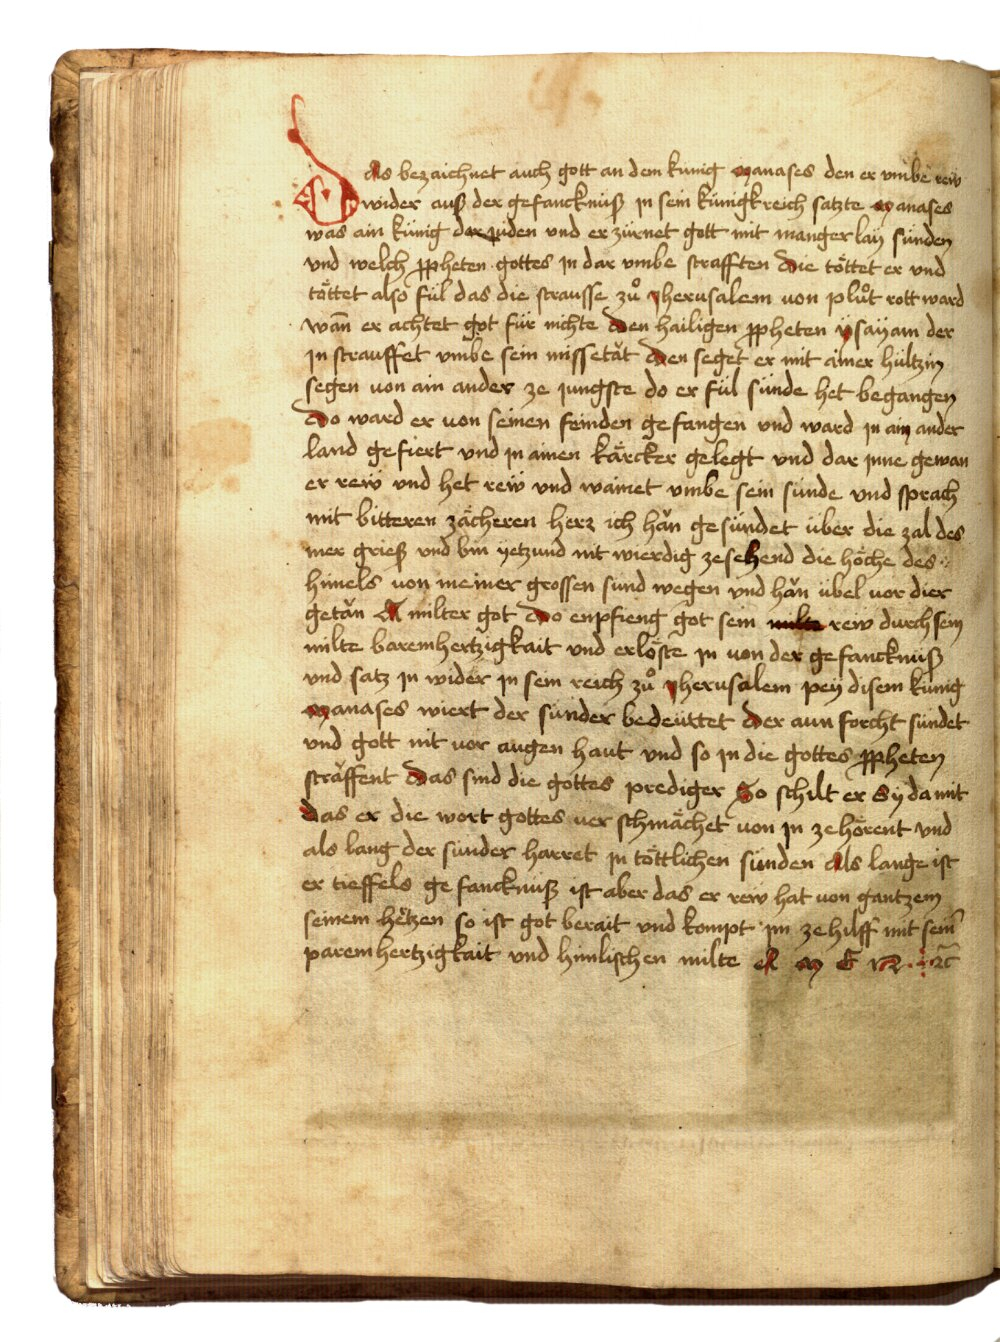 Das bezaichnet auch gott an dem künig Manases den er vmbe rew
wider auß der gefancknuß jn sein künigkreich satzte Manases
was ain künig der juden vnd er zürnet gott mit manger lay sünden
vnd welch ꝓpheten gottes jn dar vmbe strafften Die töttet er vnd
töttet also fül das die strausse zuͦ Jherusalem von pluͦt rott ward
wañ er achtet got für nichte Den hailigen ꝓpheten ÿsaÿam der
jn strauffet vmbe sein missetăt Den seget er mit ainer hültzin
segen von ain ander ze jungste do er fül sünde het begangen
Do ward er von seinen feinden gefangen vnd ward jn ain ander
land gefiert vnd jn ainen kărcker gelegt vnd dar jnne gewan
er rew vnd het rew vnd wainet vmbe sein sünde vnd sprach
mit bitteren zăcheren herz ich hăn gesündet über die zal des
mer grieß vnd bin yetzund nit wierdig zesehend die höche des
himels von meiner grossen sund wegen vnd hăn übel vor dier
getăn A milter got Do enpfieng got sein rew durch sein
milte baremhertzigkait vnd erlöste jn von der gefancknuß
vnd satz jn wider jn sein reich zuͦ Jherusalem peÿ disem künig
Manases wiert der sünder bedeüttet Der aun forcht sündet
vnd gott nit vor augen haut vnd so jn die gottes ꝓpheten
străffent Das sind die gottes prediger So schilt er Sÿ da mit
Das er die wort gottes ver schmăchet von jn ze hörent vnd
als lang der sünder harret jn töttlichen sünden Als lange ist
er tieffels gefancknuß ist aber das er rew hat von gantzem
seinem hĕtzen so ist got berait vnd kompt jm ze hilff mit sein̄
paremhertzigkait vnd himlischen milte A M E N